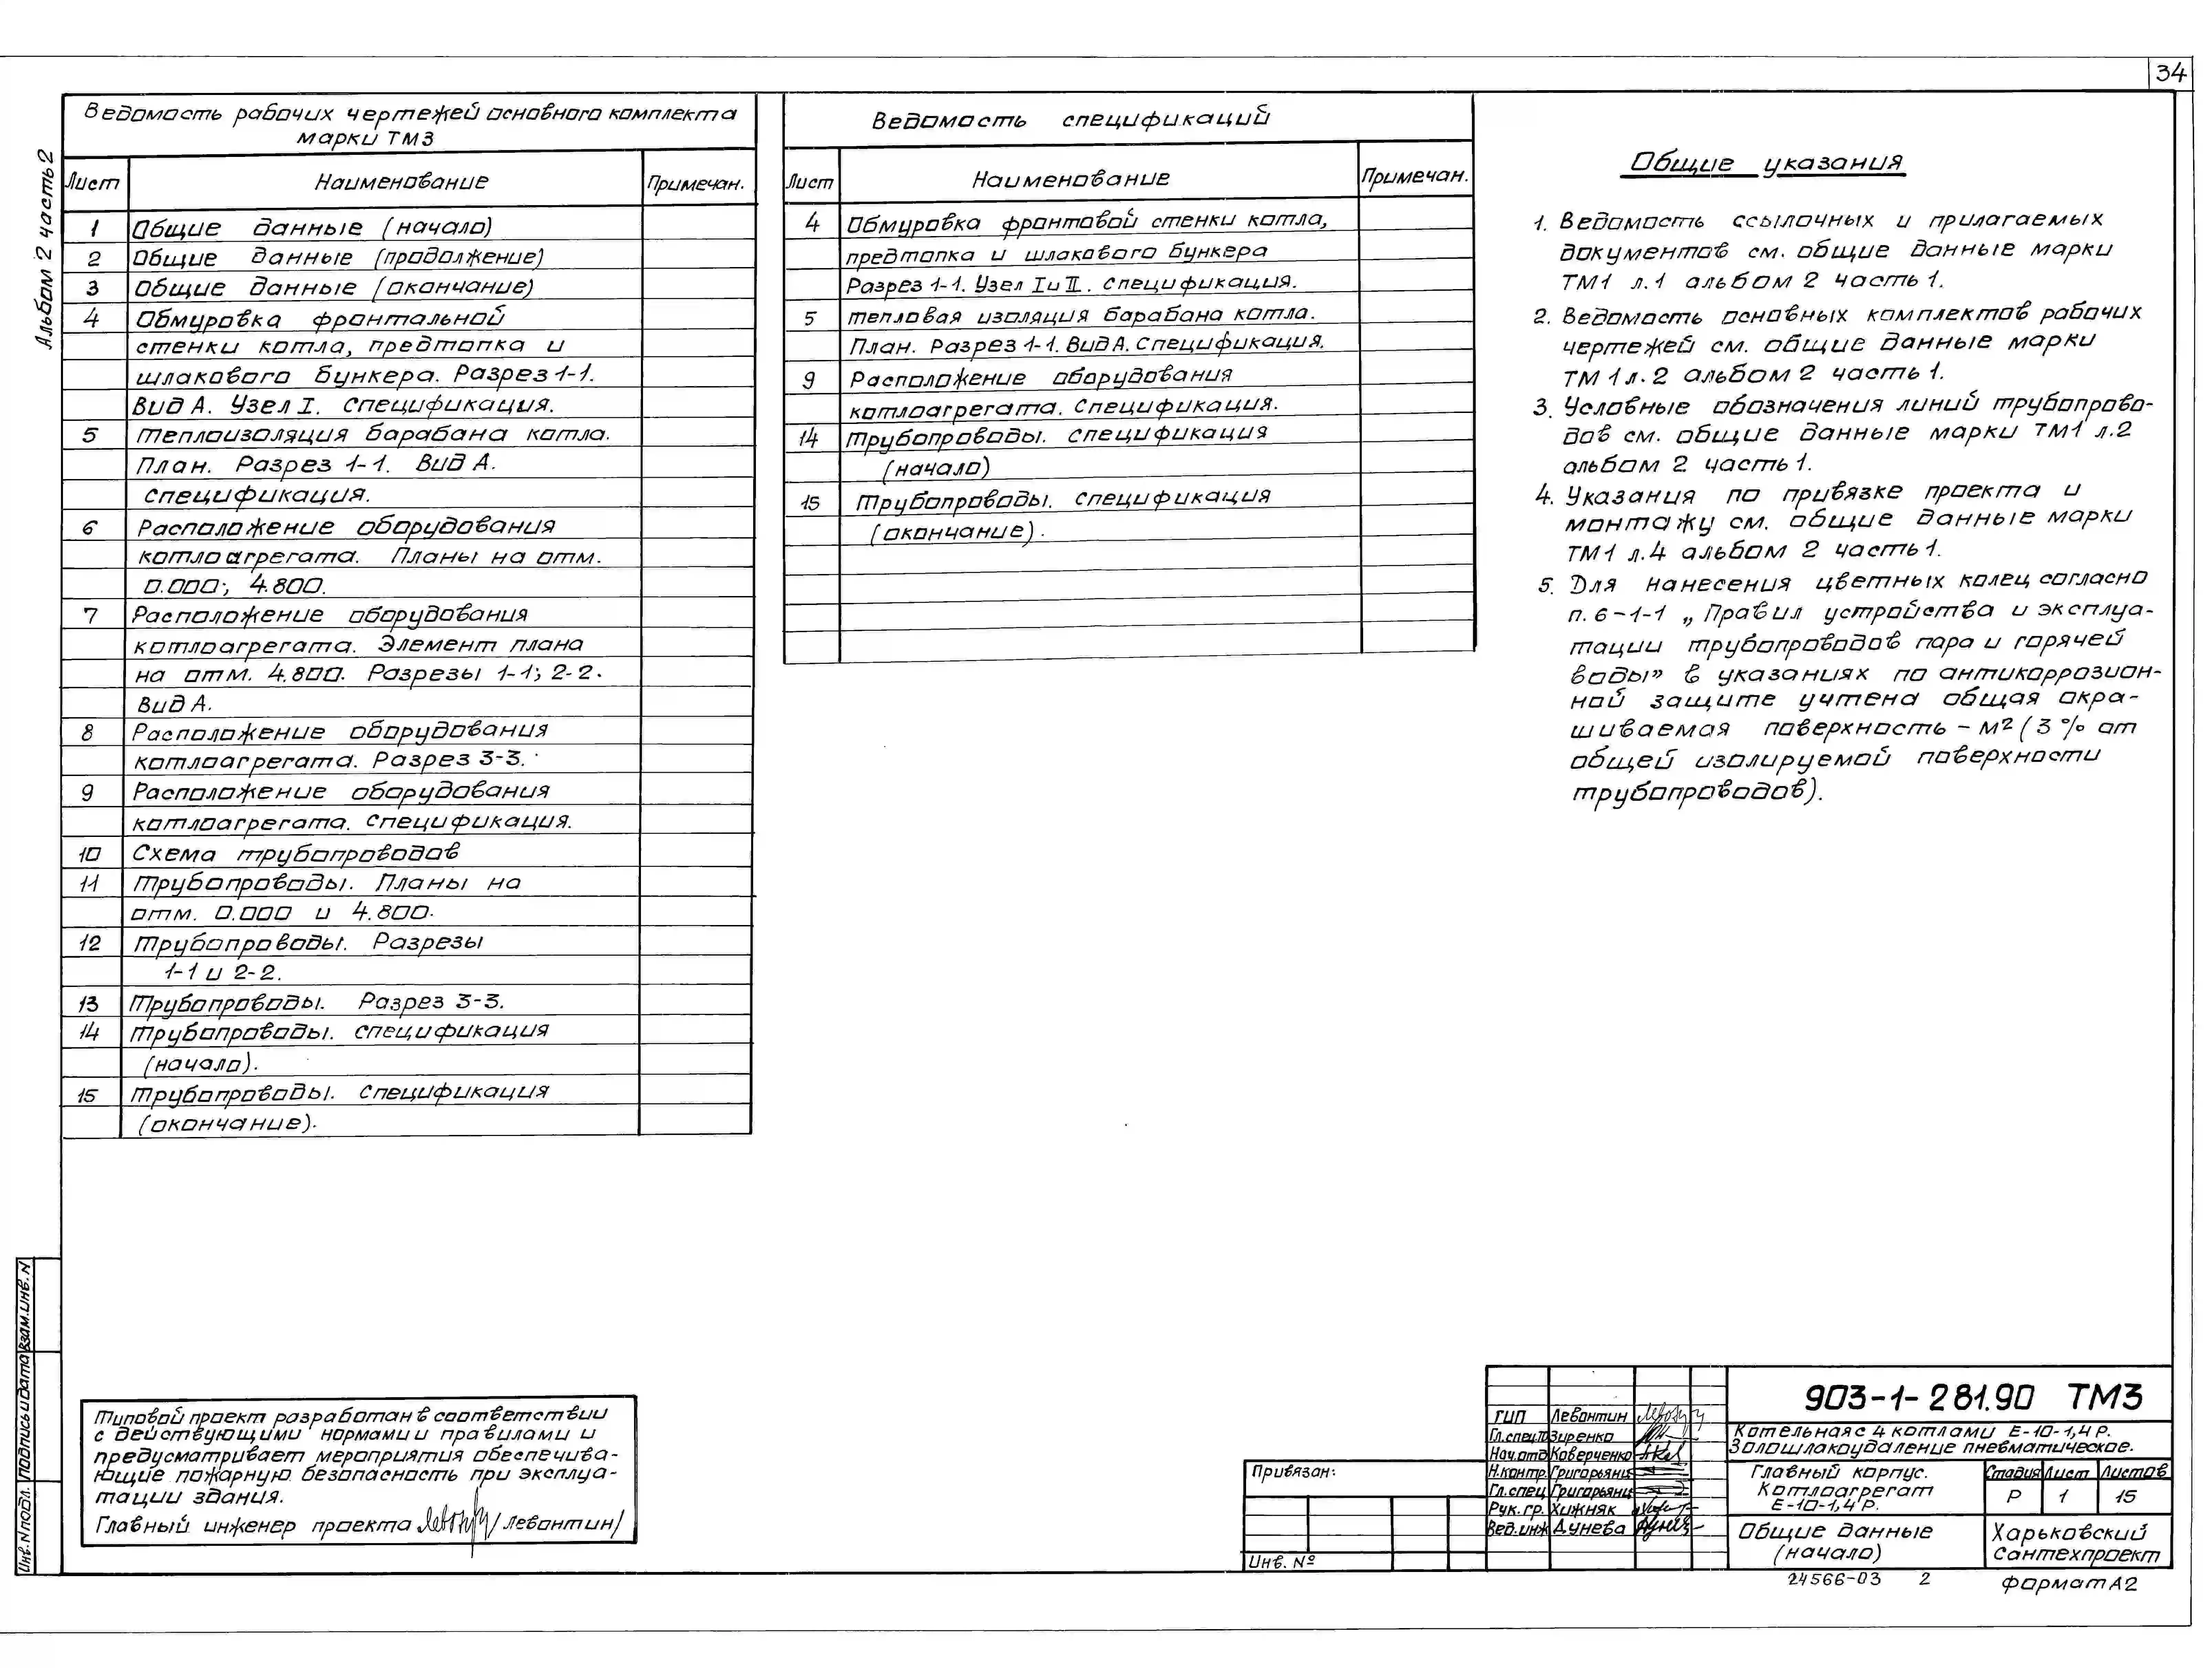 34
Альбом 2 часть 2
Ведомость рабочих чертежей основного комплекта
марки ТМ3
Лист Наименование Примечан.
1 Общие данные (начало)
2 Общие данные (продолжение)
3 Общие данные (окончание)
4 Обмуровка фронтальной
стенки котла, предтопка и
шлакового бункера. Разрез 1-1.
Вид А. Узел I. Спецификация.
5 Теплоизоляция барабана котла.
План. Разрез 1-1. Вид А.
Спецификация.
6 Расположение оборудования
котлоагрегата. Планы на отм.
0.000; 4.800.
7 Расположение оборудования
котлоагрегата. Элемент плана
на отм. 4.800. Разрезы 1-1; 2-2.
Вид А.
8 Расположение оборудования
котлоагрегата. Разрез 3-3.
9 Расположение оборудования
котлоагрегата. Спецификация.
10 Схема трубопроводов
11 Трубопроводы. Планы на
отм. 0.000 и 4.800.
12 Трубопроводы. Разрезы
1-1 и 2-2.
13 Трубопроводы. Разрез 3-3.
14 Трубопроводы. Спецификация
(начало).
15 Трубопроводы. Спецификация
(окончание).
Ведомость спецификаций
Лист Наименование Примечан.
4 Обмуровка фронтовой стенки котла,
предтопка и шлакового бункера
Разрез 1-1. Узел I и II. Спецификация.
5 Тепловая изоляция барабана котла.
План. Разрез 1-1. Вид А. Спецификация.
9 Расположение оборудования
котлоагрегата. Спецификация.
14 Трубопроводы. Спецификация
(начало)
15 Трубопроводы. Спецификация
(окончание).
Общие указания
1. Ведомость ссылочных и прилагаемых
документов см. общие данные марки
ТМ1 л.1 альбом 2 часть 1.
2. Ведомость основных комплектов рабочих
чертежей см. общие данные марки
ТМ1 л.2 альбом 2 часть 1.
3. Условные обозначения линий трубопрово-
дов см. общие данные марки ТМ1 л.2
альбом 2 часть 1.
4. Указания по привязке проекта и
монтажу см. общие данные марки
ТМ1 л.4 альбом 2 часть 1.
5. Для нанесения цветных колец согласно
п. 6-1-1 „Правил устройства и эксплуа-
тации трубопроводов пара и горячей
воды” в указаниях по антикоррозион-
ной защите учтена общая окра-
шиваемая поверхность - м2 (3 % от
общей изолируемой поверхности
трубопроводов).
Типовой проект разработан в соответствии
с действующими нормами и правилами и
предусматривает мероприятия обеспечива-
ющие пожарную безопасность при эксплуа-
тации здания.
Главный инженер проекта /Левонтин/
Инв.N подл. Подпись и дата Взам.инв.N
Привязан:
Инв. №
ГИП Левонтин
Гл.спец.ТО Зиренко
Нач.отд Коверченко
Н.контр. Григорьянц
Гл.спец Григорьянц
Рук. гр. Хижняк
Вед.инж Дунева
903-1-281.90 ТМ3
Котельная с 4 котлами Е-10-1,4 Р.
Золошлакоудаление пневматическое.
Главный корпус.
Котлоагрегат
Е-10-1,4 Р.
Стадия Лист Листов
Р 1 15
Общие данные
(начало)
Харьковский
Сантехпроект
24566-03 2
формат А2